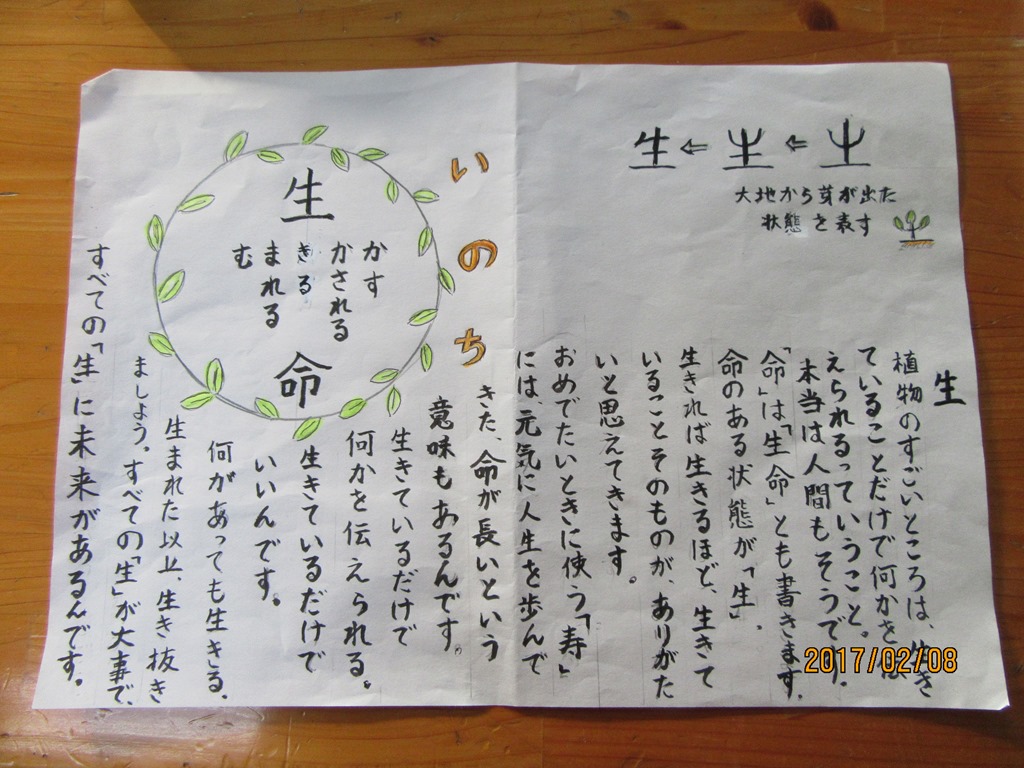 生⇐ ⇐
大地から芽が出た
状態を表す
生
植物のすごいところは、生き
ていることだけで何かを
えられるっていうこと。
本当は人間もそうで
「命」は「生命」とも書きます。
命のある状態が「生」。
生きれば生きるほど、生きて
いることそのものが、ありがた
いと思えてきます。
おめでたいときに使う「寿」
には元気に人生を歩んで
いのち
きた、命が長いという
意味もあるんです。
生きているだけで
何かを伝えられる。
生きているだけで
いいんです。
何があっても生きる。
生まれた以上、生き抜き
ましょう。すべての「生」が大事で、
すべての「生」に未来があるんです。
生
かす
かされる
きる
まれる
む
命
2017/02/08